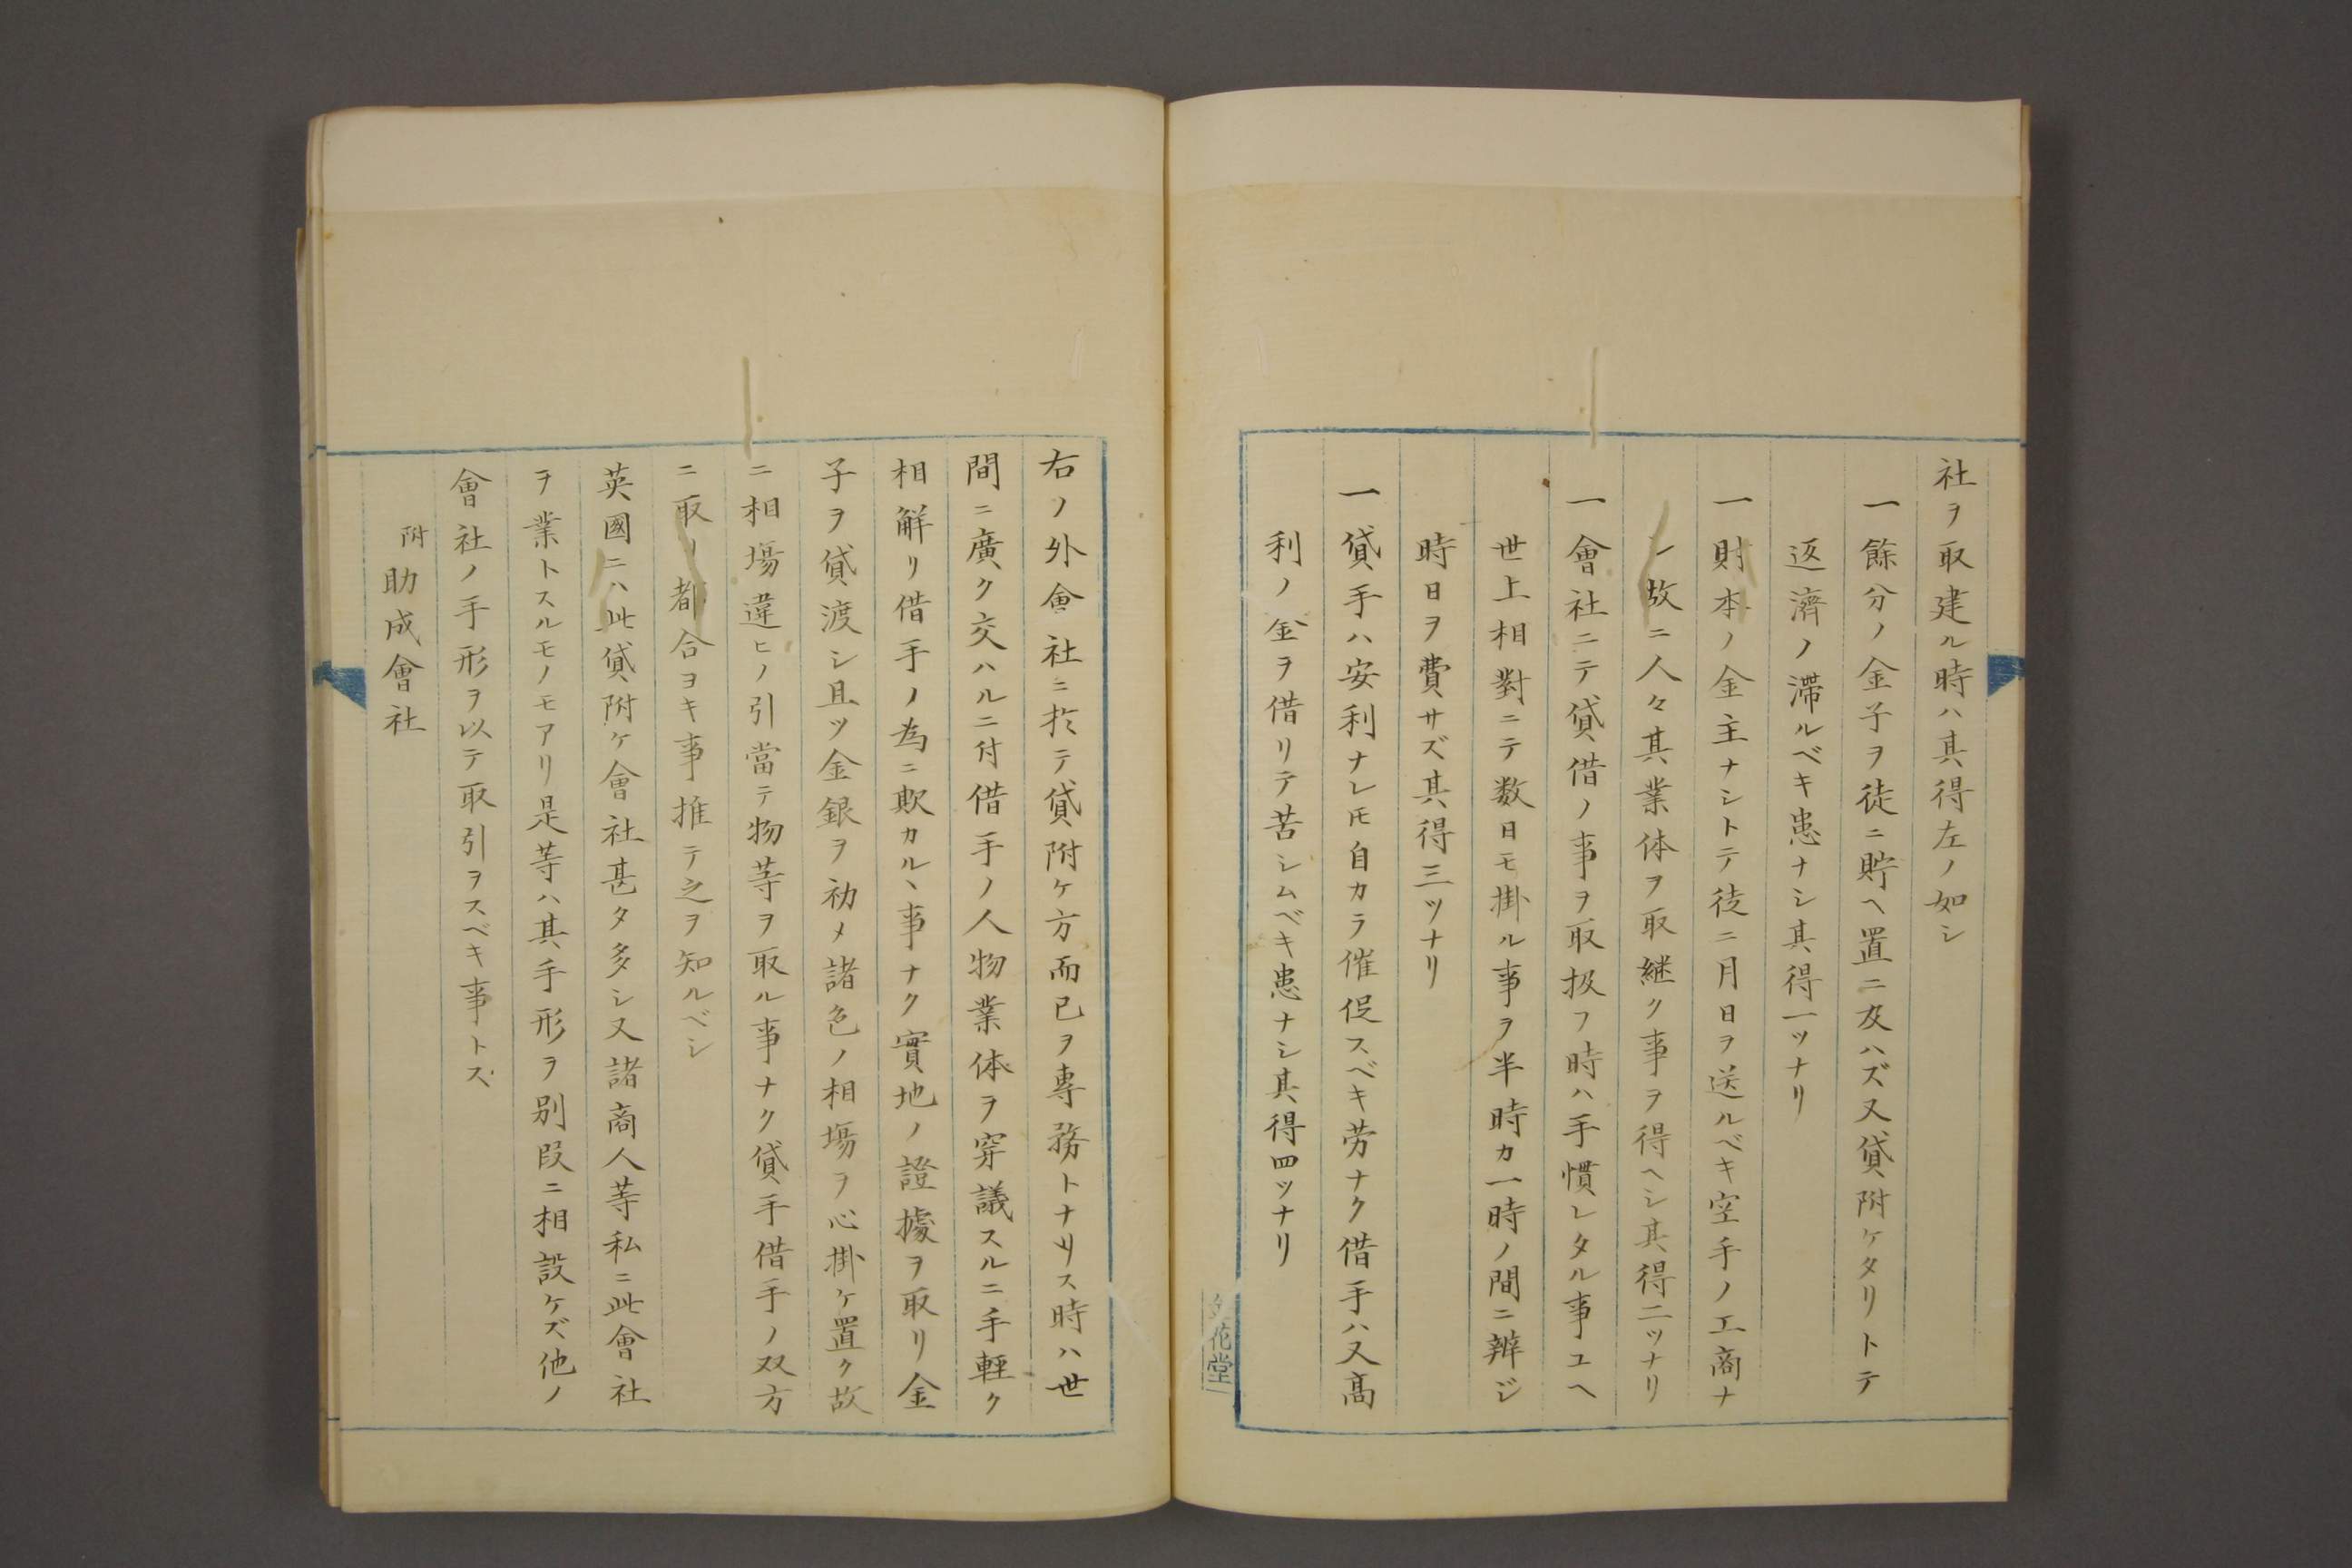 社ヲ取建ル時ハ其得左ノ如シ
一餘分ノ金子ヲ徒ニ貯ヘ置ニ及ハズ又貸附ケタリトテ
返濟ノ滯ルベキ患ナシ其得一ツナリ
一財本ノ金主ナシトテ徒ニ月日ヲ送ルベキ空手ノ工商ナ
シ故ニ人々其業体ヲ取継ク事ヲ得ヘシ其得二ツナリ
一會社ニテ貸借ノ事ヲ取扱フ時ハ手慣レタル事ユヘ
世上相對ニテ数日モ掛ル事ヲ半時カ一時ノ間ニ辨ジ
時日ヲ費サズ其得三ツナリ
一貸手ハ安利ナレ𪜈自カラ催促スベキ労ナク借手ハ又高
利ノ金ヲ借リテ苦シムベキ患ナシ其得四ツナリ
花堂
右ノ外會社ニ於テ貸附ケ方而已ヲ專務トナリス時ハ世
間ニ廣ク交ハルニ付借手ノ人物業体ヲ穿議スルニ手軽ク
相解リ借手ノ為ニ欺カルヽ事ナク實地ノ證據ヲ取リ金
子ヲ貸渡シ且ツ金銀ヲ初メ諸色ノ相塲ヲ心掛ケ置ク故
ニ相塲違ヒノ引當テ物等ヲ取ル事ナク貸手借手ノ双方
ニ取リ都合ヨキ事推テ之ヲ知ルベシ
英國ニハ此貸附ケ會社甚タ多シ又諸商人等私ニ此會社
ヲ業トスルモノモアリ是等ハ其手形ヲ別段ニ相設ケズ他ノ
會社ノ手形ヲ以テ取引ヲスベキ事トス
附助成會社